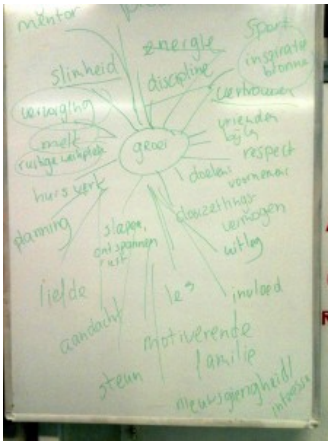 mentor
energie
sport
slimheid
discipline
inspiratie
bronnen
verzorging
vertrouwen
groei
vrienden
respect
rustige werkplek
huiswerk
doelen
planning
slapen,
ontspannen
rust
doorzettings-
vermogen
uitleg
liefde
les
invloed
aandacht
motiverende
familie
steun
nieuwsgierigheid/
interesse